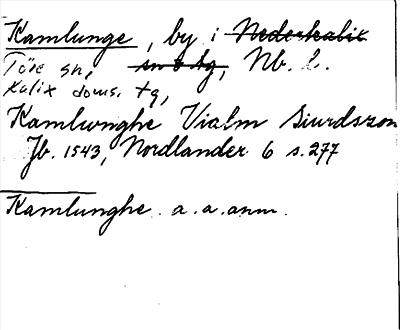 Kamlunge, by i Nederkalix
Töre sn, sn o tg, Nb. l.
Kalix doms. tg,
Kamlwnghe Vialm Siurdszon
Jb. 1543, Nordlander 6 s. 277
Kamlunghe a. a. anm.